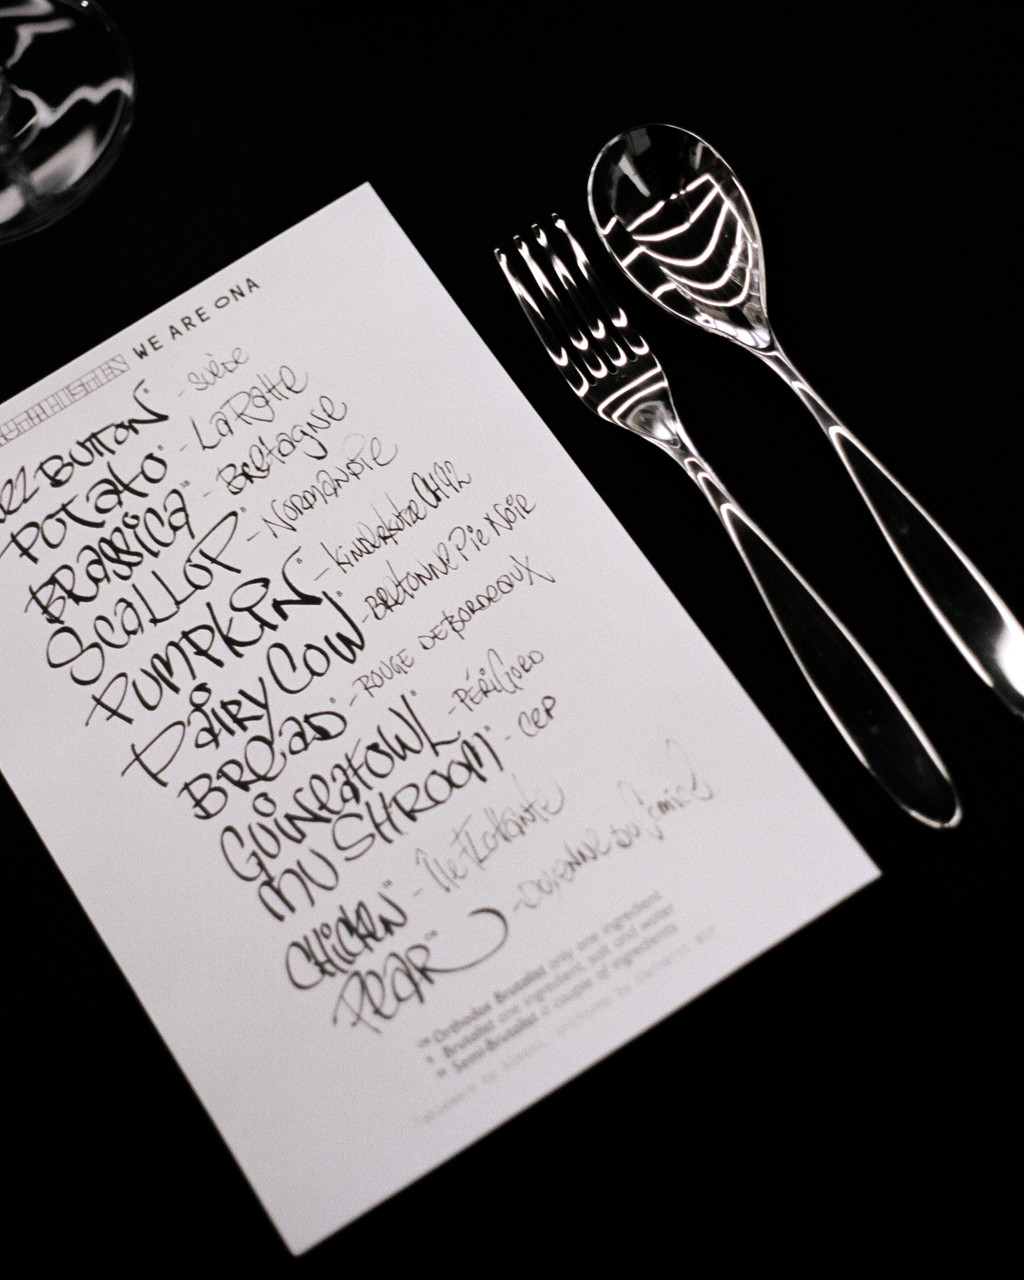 WE ARE ONA
BUTTON" - Suède
POTATO" - La Ratte
BRASSICA" - Bretagne
SCALLOP" - NORMANDIE
PUMPKIN"
DAIRY COW" - BRETONNE Pie Noir
BREAD" - ROUGE DE BORDEAUX
GUINEAFOWL" - PÉRIGORD
MUSHROOM" - CEP
CHICKEN" - Île Flottante
PEAR - DOYENNE DU Comice
Orthodox Brutalist only one ingredient
Brutalist one ingredient, salt and water
Semi-Brutalist a couple of ingredients